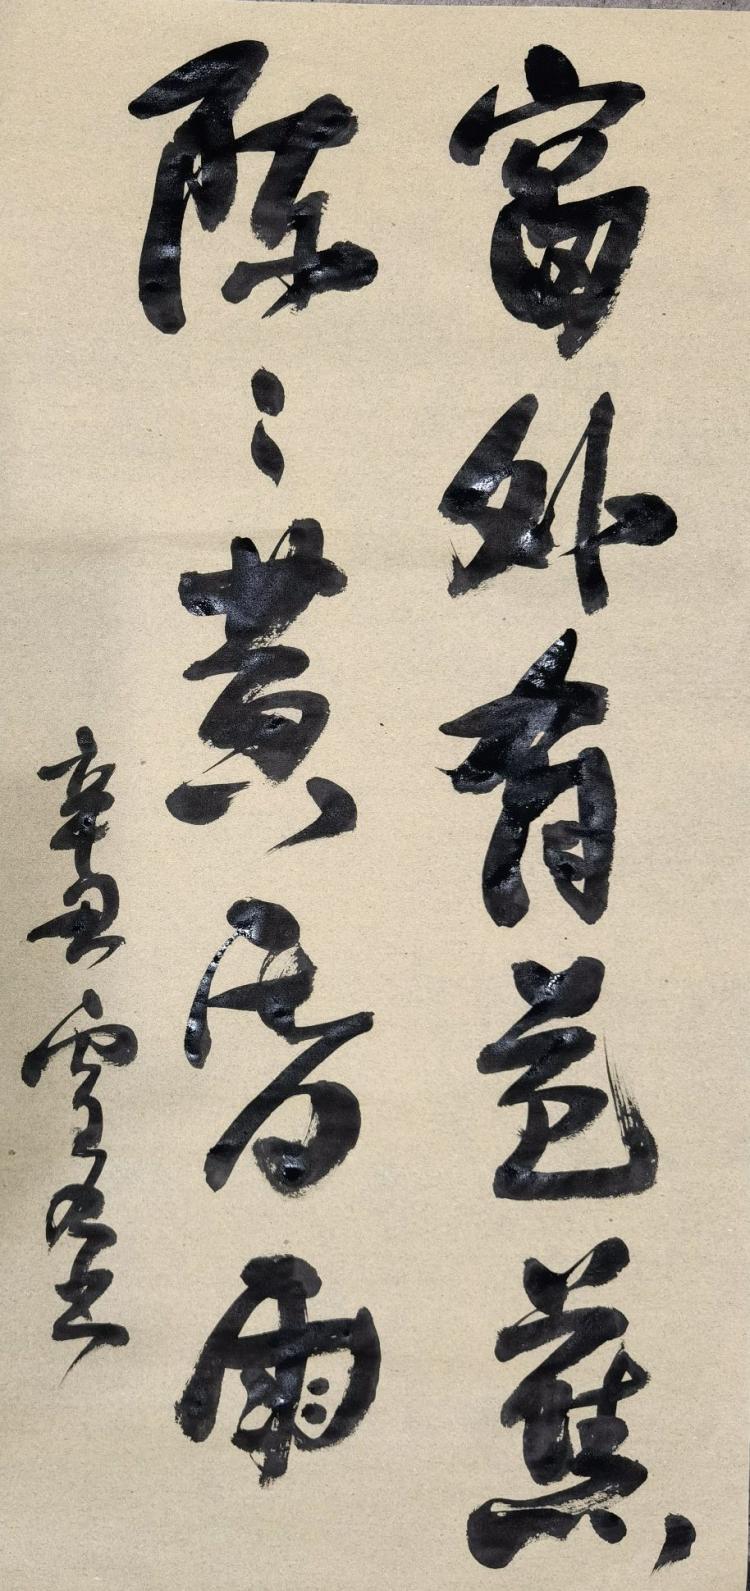 窗外有芭蕉
陣〻黄昏雨
辛丑雲